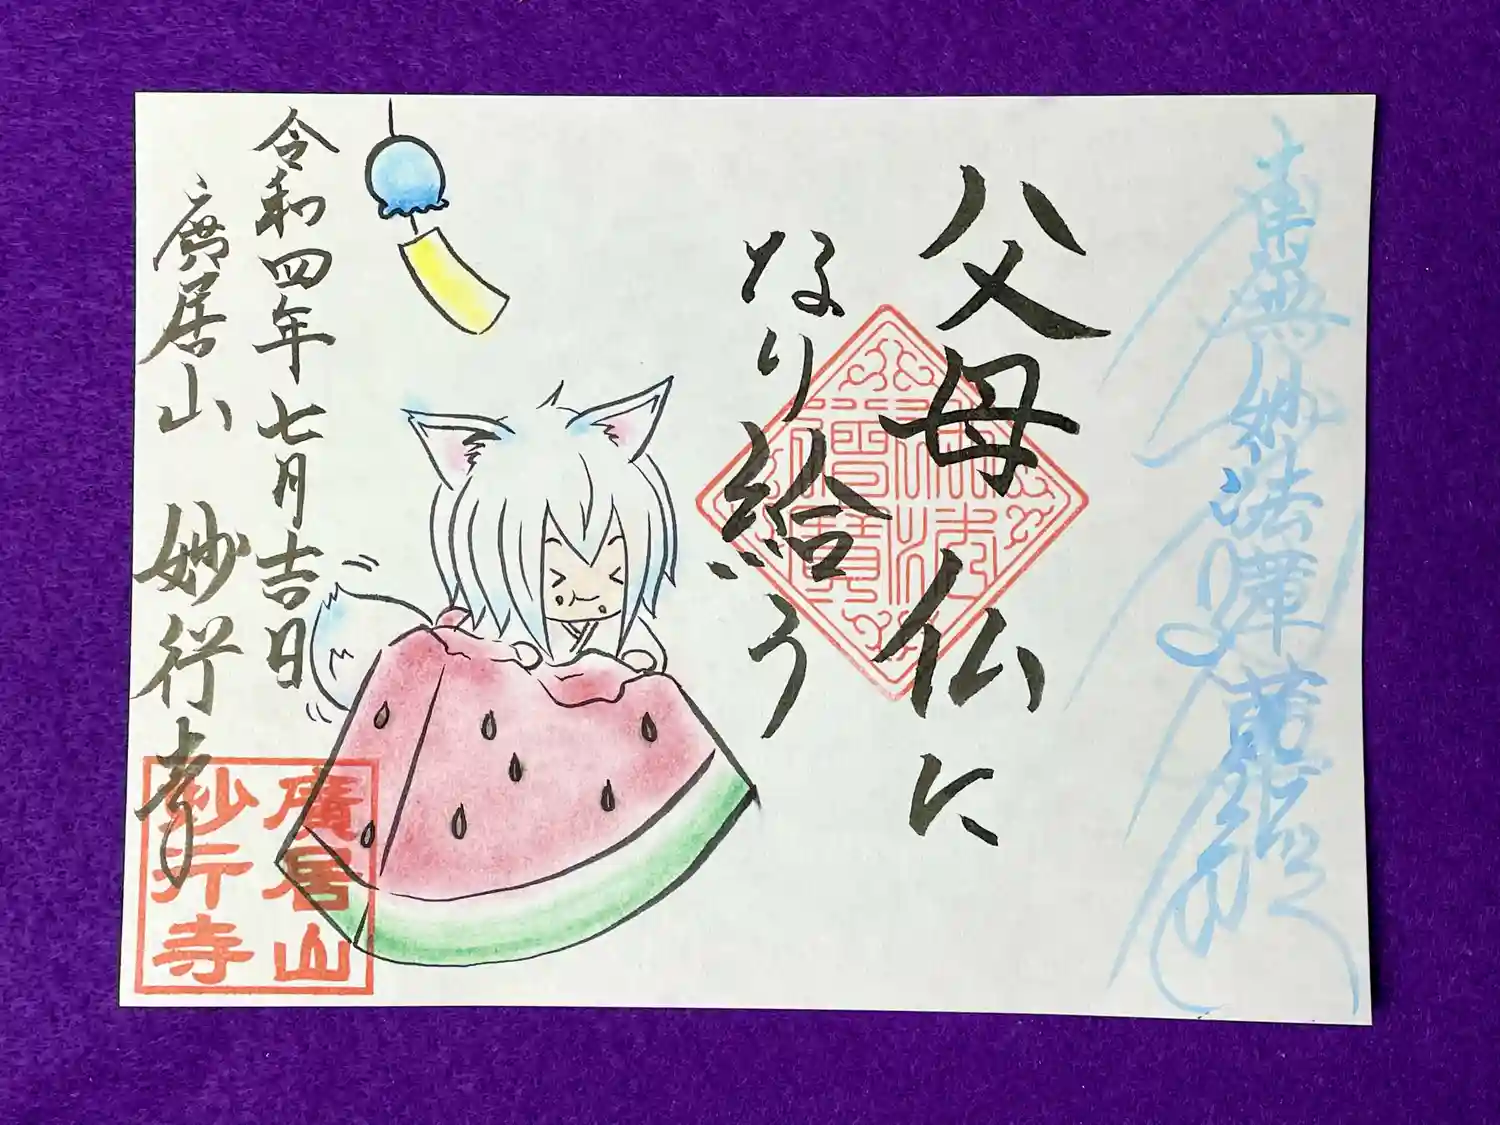 南無妙法蓮華經
父母仏に
なり給う
令和四年七月吉日
廣居山 妙行寺
佛法僧寶
廣居山
妙行寺